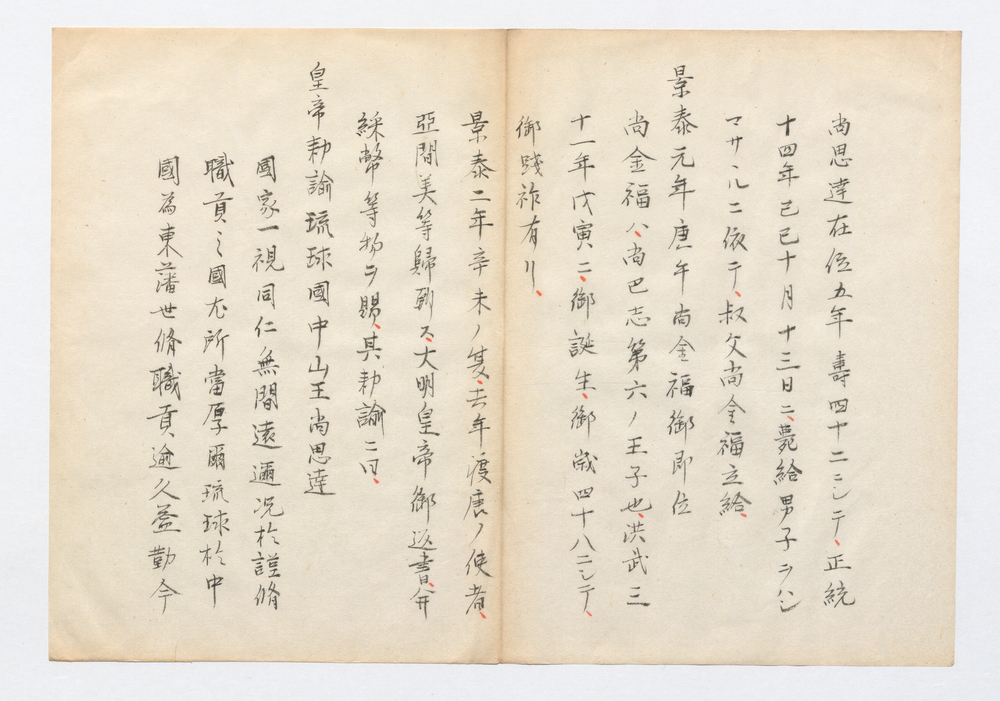 尚思達在位五年壽四十二ニシテ、正統
十四年己巳十月十三日ニ、薨給男子ヲハシ
マサヽルニ依テ、叔父尚金福立給、
景泰元年庚午尚金福御即位
尚金福ハ、尚巴志第六ノ王子也、洪武三
十一年戊寅ニ、御誕生、御歳四十八ニシテ、
御踐祚有リ、
景泰二年辛未ノ夏、去年渡唐ノ使者、
亞間美等歸朝ス、大明皇帝御返書、并
綵幣等物ヲ賜、其勅諭ニ曰、
皇帝勅諭琉球國中山王尚思達
國家一視同仁無間遠邇况於謹脩
職貢之國尤所當厚爾琉球於中
國為東藩世脩職貢逾久益勤今